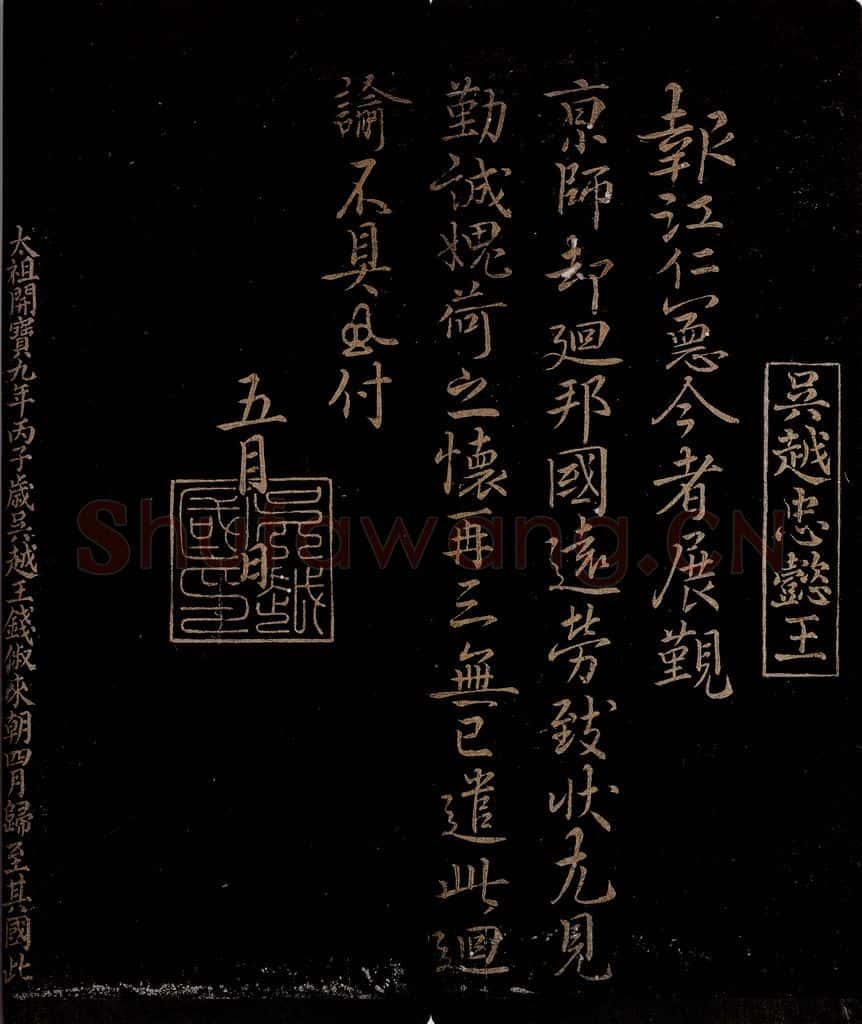 吳越忠懿王
報江仁
今者展覲
京師却迴邦國遠勞致狀尤見
勤誠媿荷之懷再三無已遣此迴
諭不具
付
五月 日
吳越國王
Shufawang.CN
太祖開寶九年丙子歲吳越王錢俶來朝四月歸至其國此